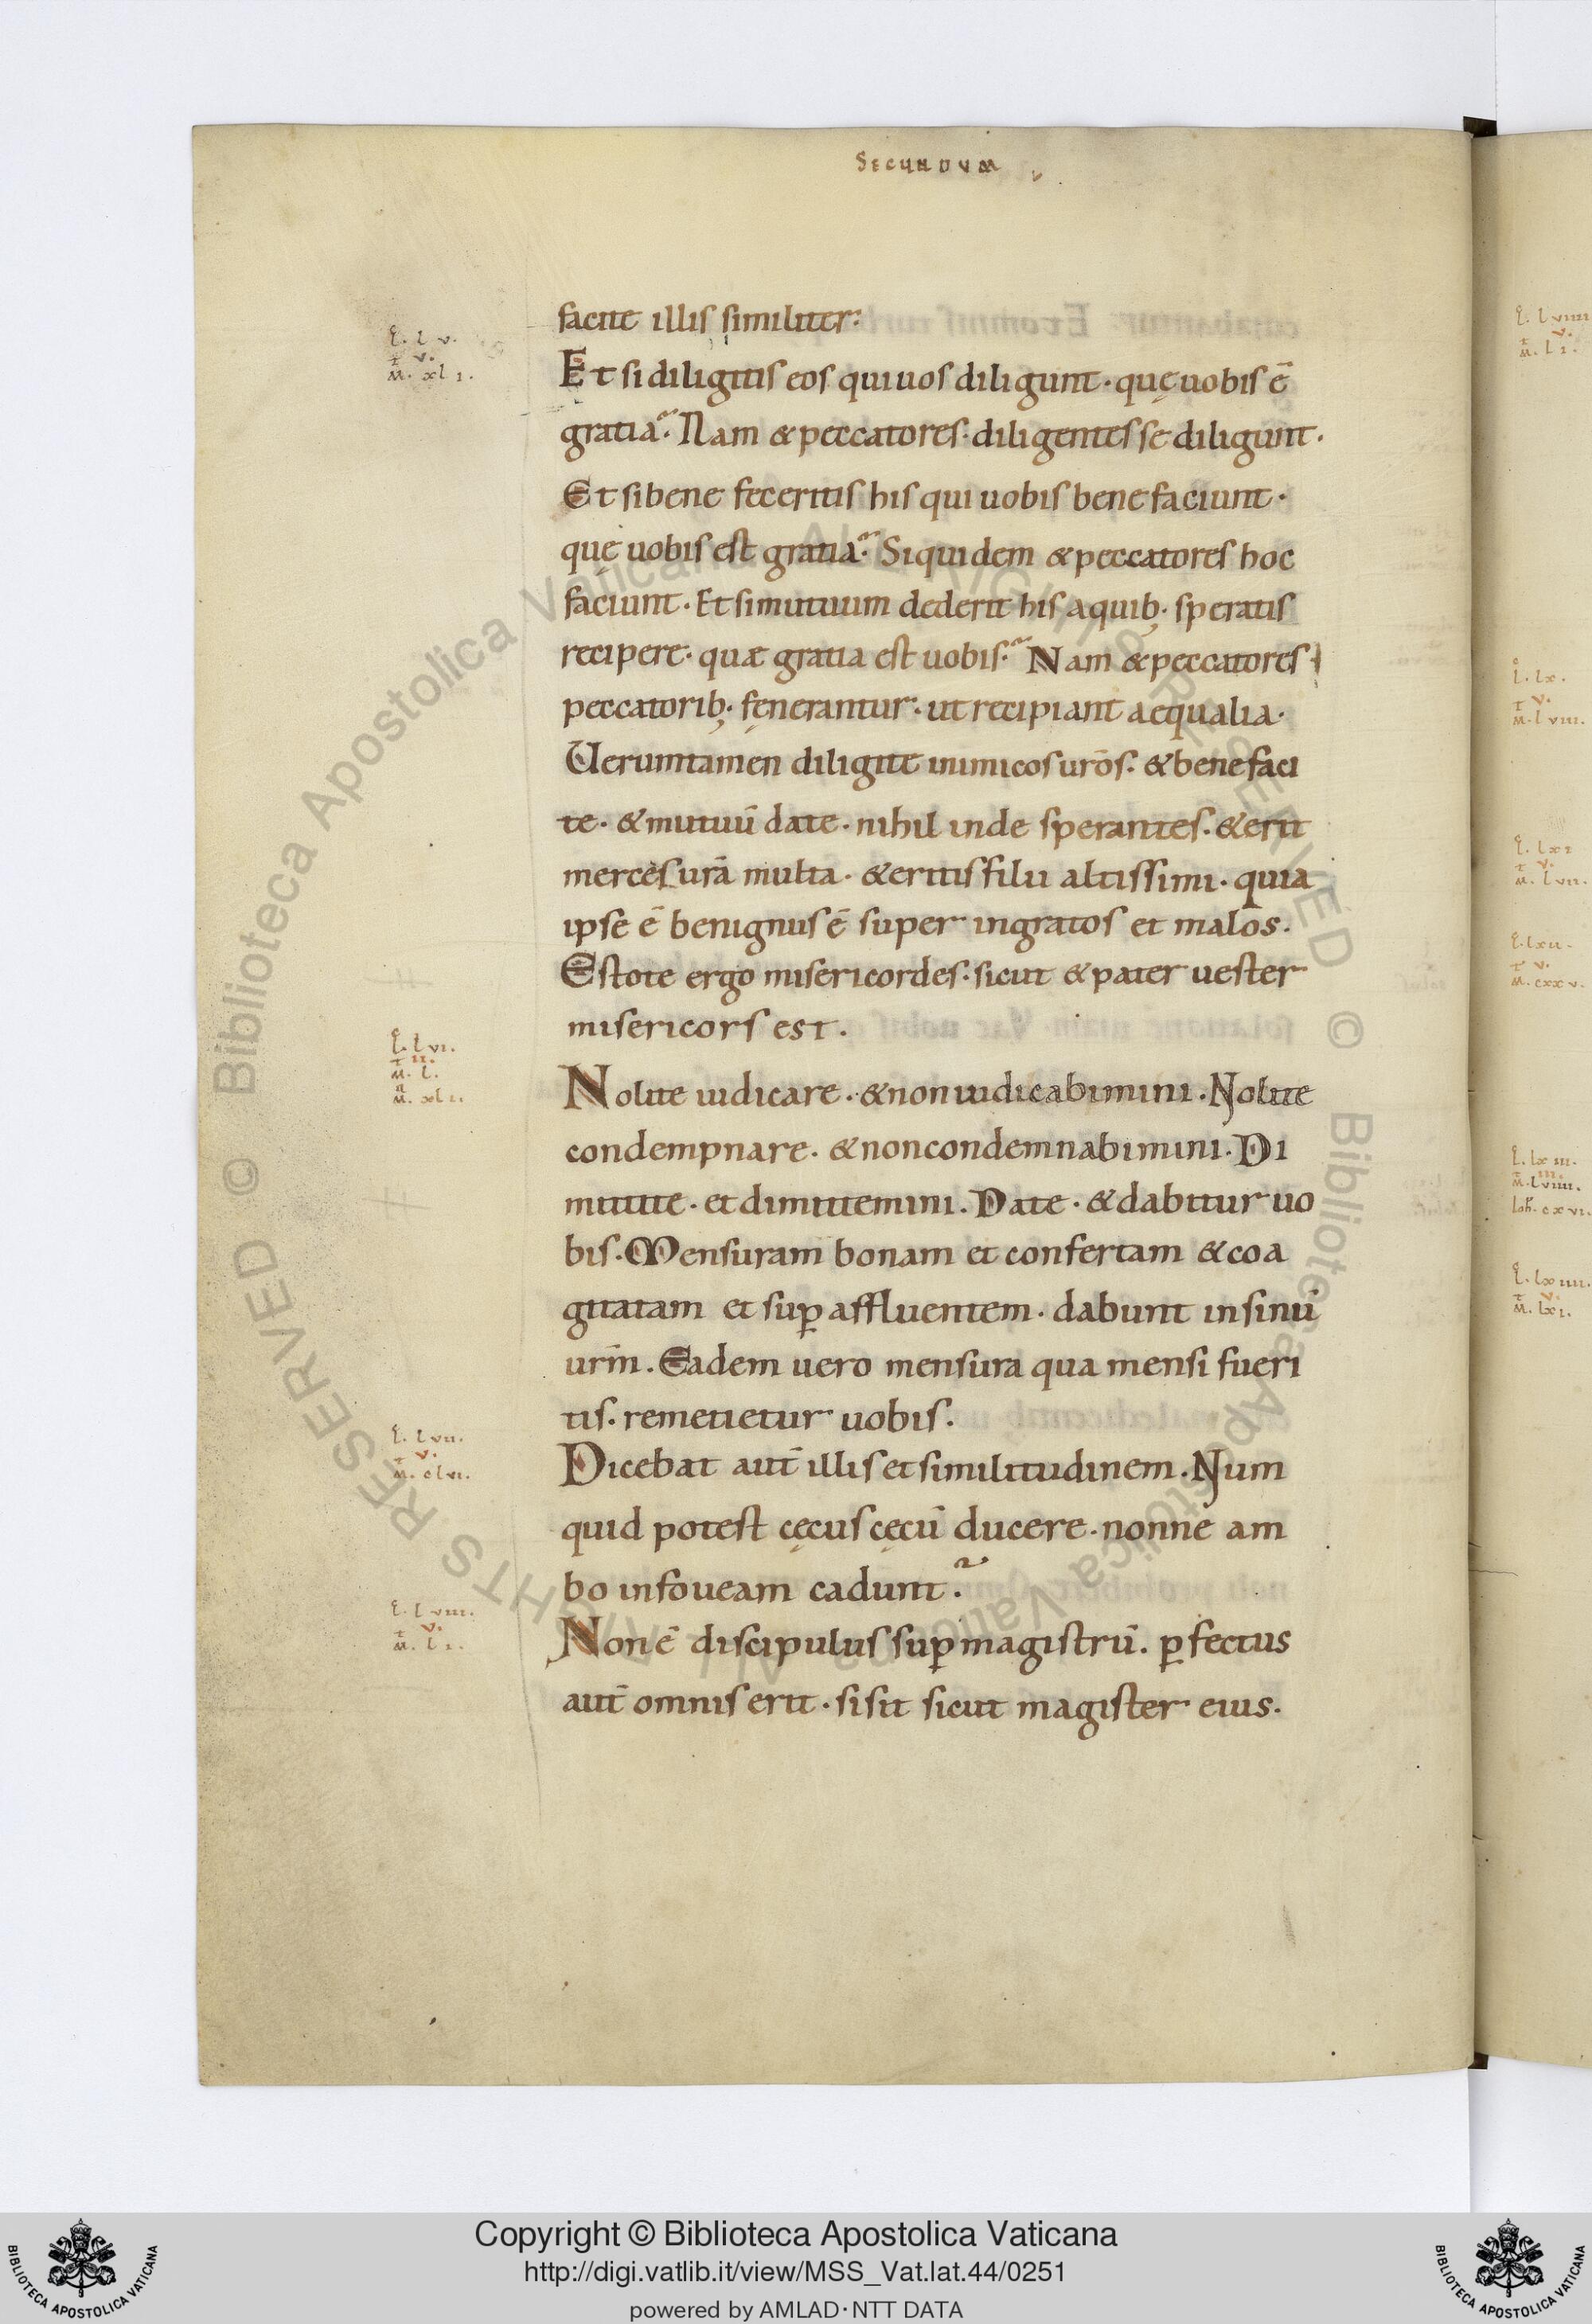 SECUNDVM
facite illis similiter.
L. l v.
v.
M. xl i.
Et si diligitis eos qui uos diligunt · quę uobis ē
gratia? Nam & peccatores · diligentes se diligunt.
Et si bene feceritis his qui uobis bene faciunt ·
quę uobis est gratia? Siquidem & peccatores hoc
faciunt · Et si mutuum dederit his a quib; · speratis
recipere · quæ gratia est uobis? Nam & peccatores
peccatorib; · fęnerantur · ut recipiant aequalia ·
Ueruntamen diligite inimicos urōs · & bene faci
te · & mutuū date · nihil inde sperantes · & erit
merces urā multa · & eritis filii altissimi · quia
ipse ē benignus ē super ingratos et malos.
Estote ergo misericordes · sicut & pater uester
misericors est.
L. l vi.
ii.
M. l.
M. xl i.
Nolite iudicare · & non iudicabimini. Nolite
condempnare · & non condemnabimini. Di
mittite · et dimittemini. Date · & dabitur uo
bis. Mensuram bonam et confertam & coa
gitatam et suꝑ affluentem · dabunt in sinū
urm̄. Eadem uero mensura qua mensi fueri
tis · remetietur uobis.
L. l vii.
v.
M. cl vi.
Dicebat aut̄ illis et similitudinem. Num
quid potest cęcus cęcū ducere · nonne am
bo in foueam cadunt?
L. l viii.
v.
M. l i.
Non ē discipulus suꝑ magistrū. ꝑfectus
aut̄ omnis erit · si sit sicut magister eius.
L. l viiii
v.
M. l i.
L. lx.
v.
M. l viii.
L. lx i
v.
M. l vii.
L. lx ii.
v.
M. cxx v.
L. lx iii.
iii.
M. l viiii.
Ioh. cx vi.
L. lx iiii.
v.
M. lx i.
© Biblioteca Apostolica Vaticana ALL RIGHTS RESERVED © Biblioteca Apostolica Vaticana ALL RIGHTS RESERVED
Copyright © Biblioteca Apostolica Vaticana
http://digi.vatlib.it/view/MSS_Vat.lat.44/0251
powered by AMLAD·NTT DATA
BIBLIOTECA APOSTOLICA VATICANA
BIBLIOTECA APOSTOLICA VATICANA